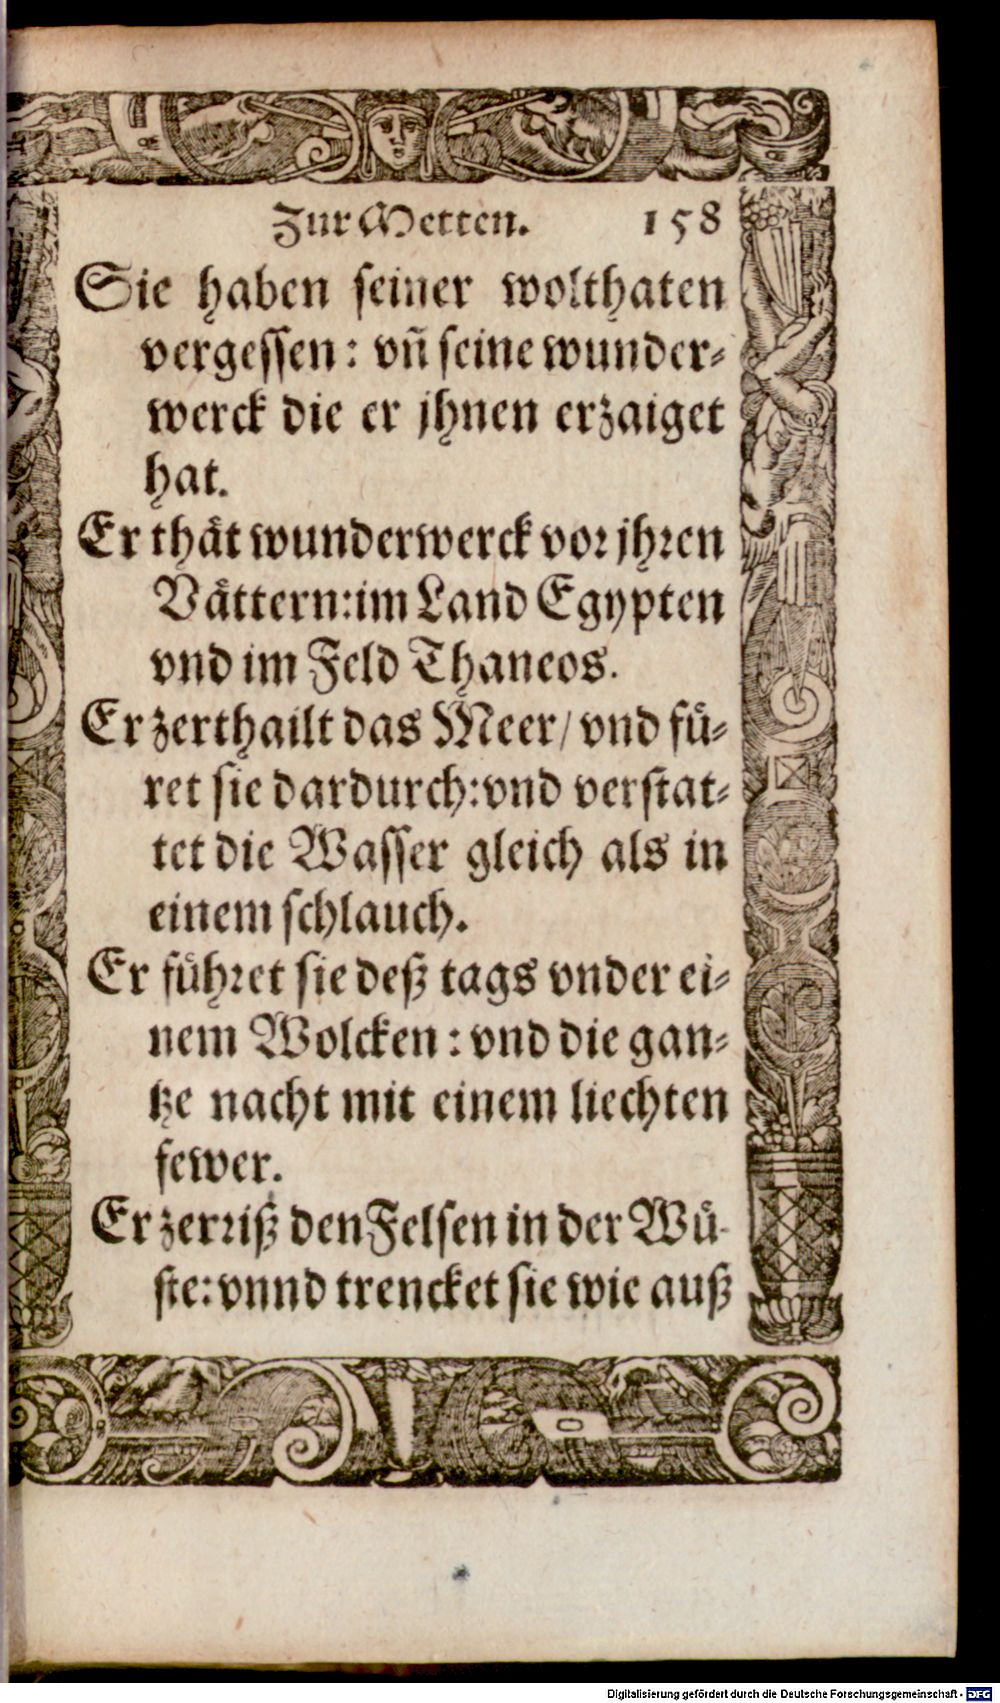 Zur Metten. 158
Sie haben seiner wolthaten
vergessen: vñ seine wunder⸗
werck die er jhnen erzaiget
hat.
Er thät wunderwerck vor jhren
Vättern: im Land Egypten
vnd im Feld Thaneos.
Er zerthailt das Meer/ vnd fü⸗
ret sie dardurch: vnd verstat⸗
tet die Wasser gleich als in
einem schlauch.
Er führet sie deß tags vnder ei⸗
nem Wolcken: vnd die gan⸗
tze nacht mit einem liechten
fewer.
Er zerriß den Felsen in der Wü⸗
ste: vnnd trencket sie wie auß
Digitalisierung gefördert durch die Deutsche Forschungsgemeinschaft - DFG